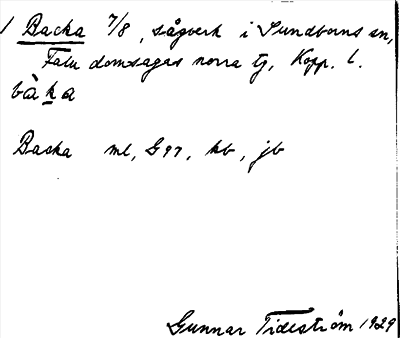 1 Backa 7/8, sågverk i Sundborns sn,
Falu domsagas norra tg, Kopp. l.
bàka
Backa ml, G 97, kb, jb
Gunnar Tideström 1929